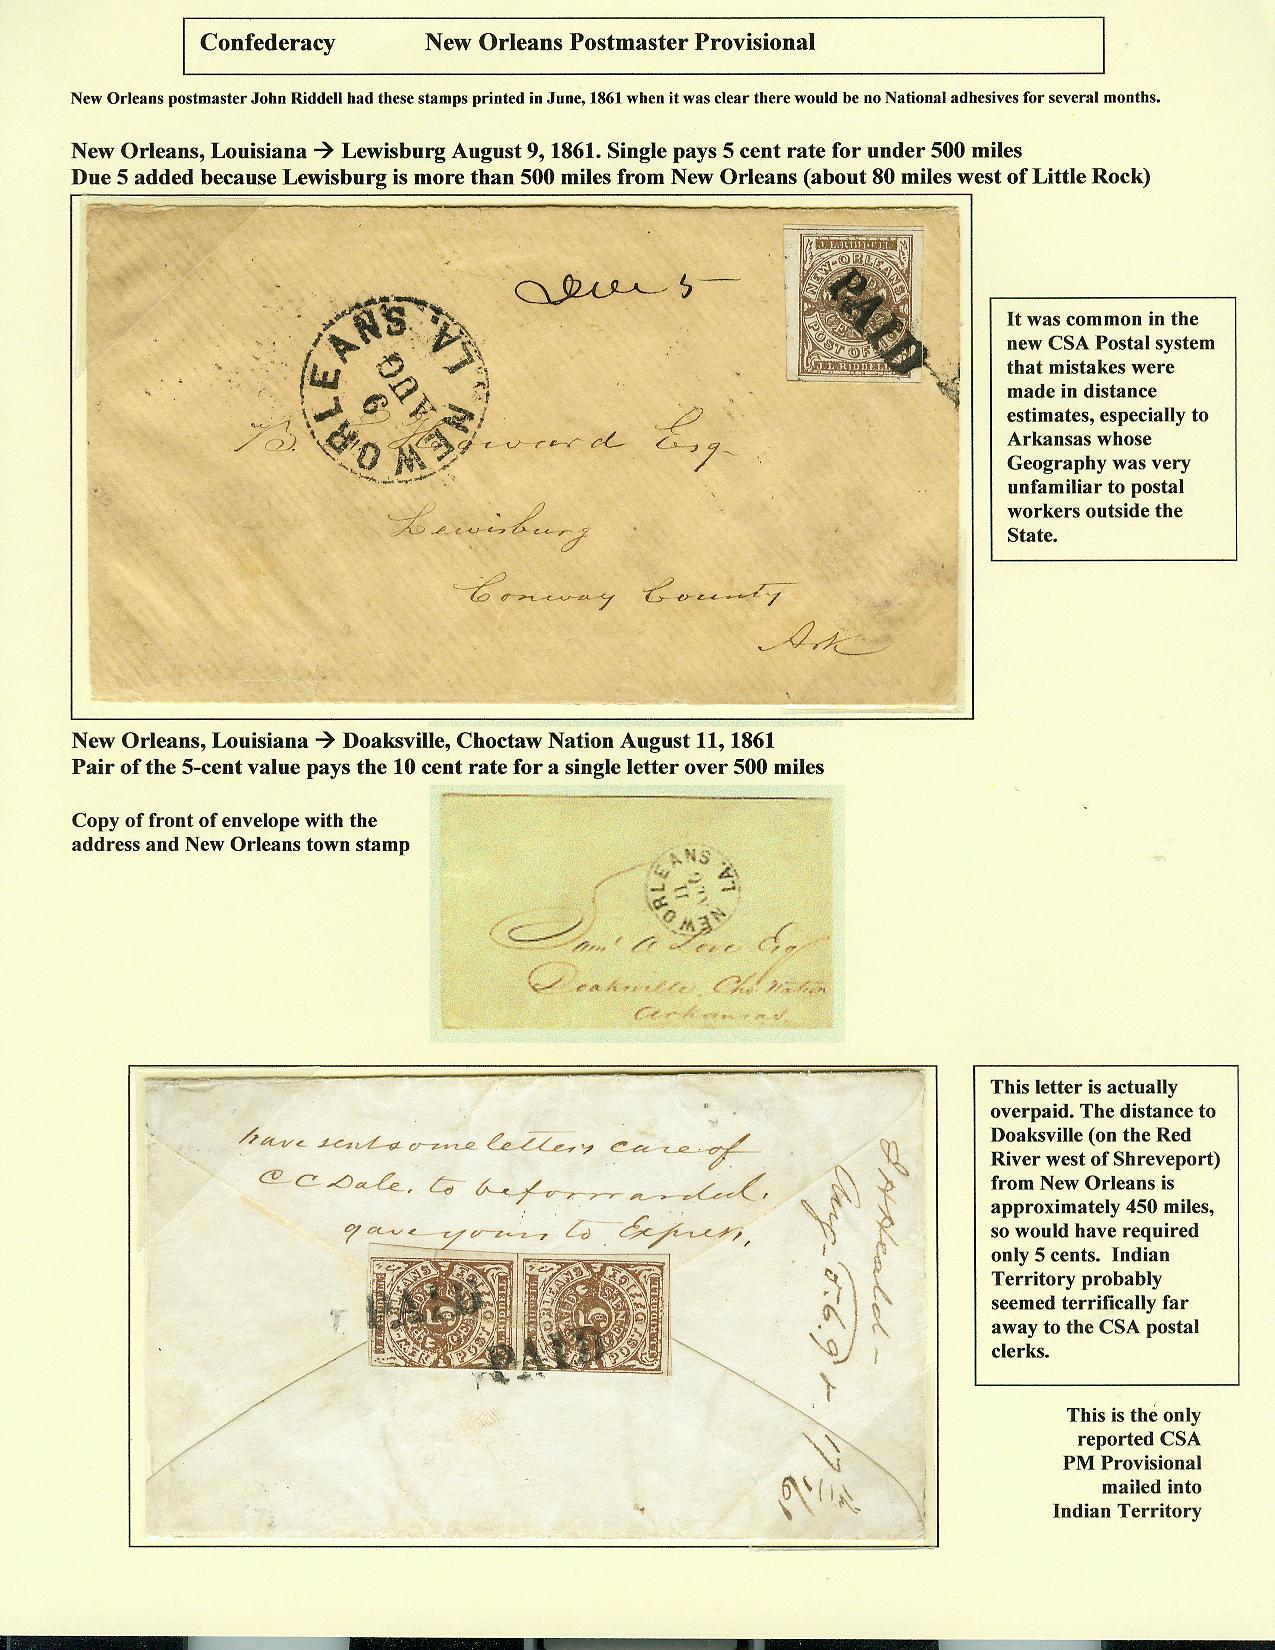 Confederacy New Orleans Postmaster Provisional
New Orleans postmaster John Riddell had these stamps printed in June, 1861 when it was clear there would be no National adhesives for several months.
New Orleans, Louisiana → Lewisburg August 9, 1861. Single pays 5 cent rate for under 500 miles
Due 5 added because Lewisburg is more than 500 miles from New Orleans (about 80 miles west of Little Rock)
Due 5
J.L.RIDDELL
NEW-ORLEANS
PAID
POST OFFICE
J.L.RIDDELL
NEW ORLEANS LA.
AUG
9
Howard Esq.
Lewisburg
Conway County
Ark
It was common in the
new CSA Postal system
that mistakes were
made in distance
estimates, especially to
Arkansas whose
Geography was very
unfamiliar to postal
workers outside the
State.
New Orleans, Louisiana → Doaksville, Choctaw Nation August 11, 1861
Pair of the 5-cent value pays the 10 cent rate for a single letter over 500 miles
Copy of front of envelope with the
address and New Orleans town stamp
NEW ORLEANS LA.
AUG
11
Saml A Love Esq
Doaksville Cho. Nation
Arkansas.
have sent some letters care of
C C Dale. to be forwarded.
gave yours to Express.
PAID
PAID
Aug. 5.6.9 &
This letter is actually
overpaid. The distance to
Doaksville (on the Red
River west of Shreveport)
from New Orleans is
approximately 450 miles,
so would have required
only 5 cents. Indian
Territory probably
seemed terrifically far
away to the CSA postal
clerks.
This is the only
reported CSA
PM Provisional
mailed into
Indian Territory